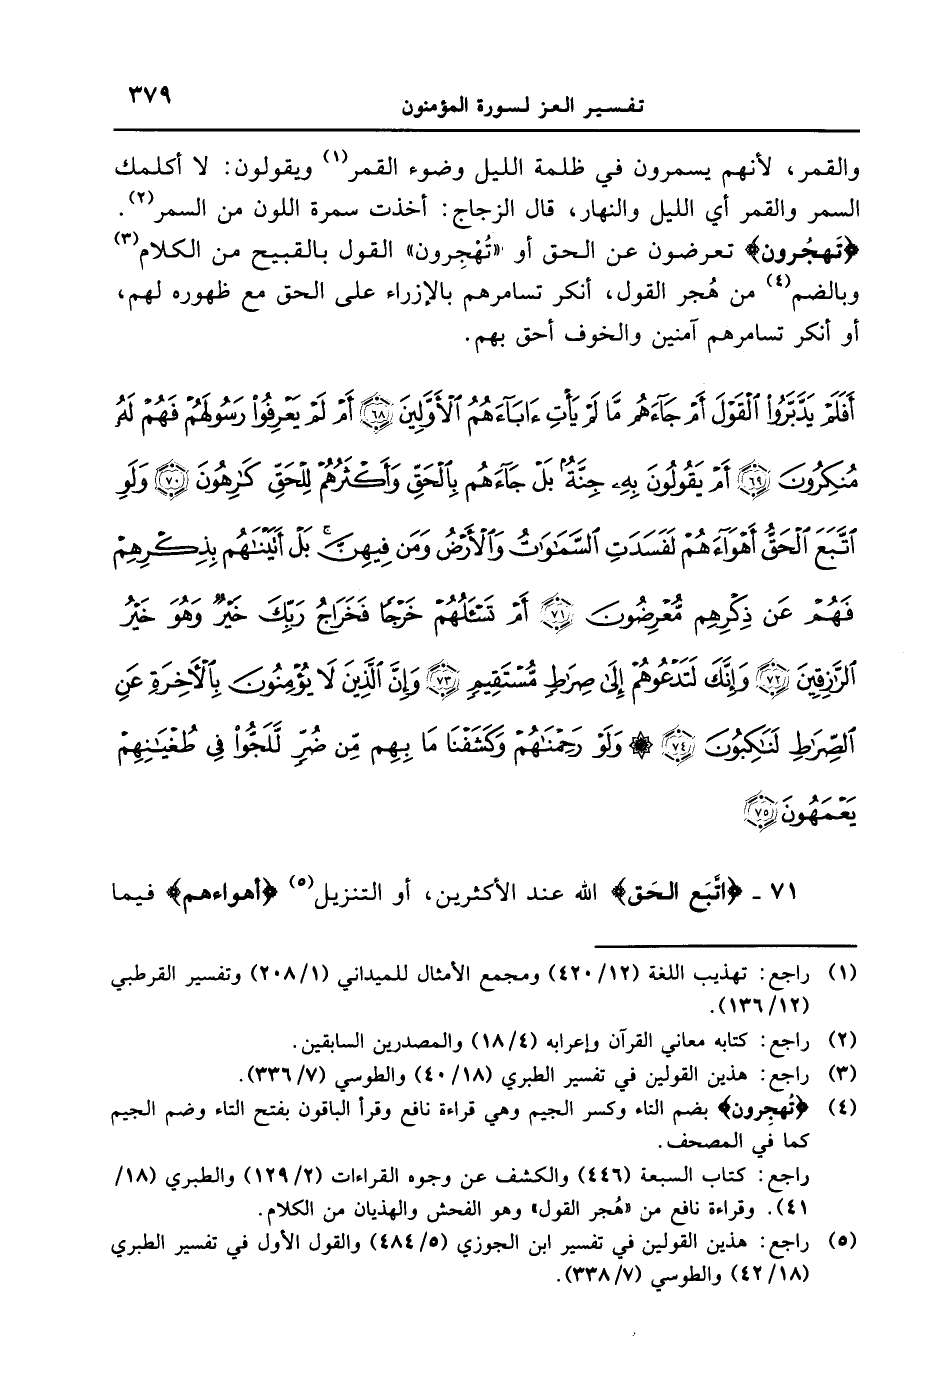 تفسير العز لسورة المؤمنون ٣٧٩
والقمر، لأنهم يسمرون في ظلمة الليل وضوء القمر(١) ويقولون: لا أكلمك
السمر والقمر أي الليل والنهار، قال الزجاج: أخذت سمرة اللون من السمر(٢).
﴿تَهجُرون﴾ تعرضون عن الحق أو «تُهْجِرون» القول بالقبيح من الكلام(٣)
وبالضم(٤) من هُجر القول، أنكر تسامرهم بالإزراء على الحق مع ظهوره لهم،
أو أنكر تسامرهم آمنين والخوف أحق بهم.
أَفَلَمْ يَدَّبَّرُوا۟ ٱلْقَوْلَ أَمْ جَآءَهُم مَّا لَمْ يَأْتِ ءَابَآءَهُمُ ٱلْأَوَّلِينَ ٦٨ أَمْ لَمْ يَعْرِفُوا۟ رَسُولَهُمْ فَهُمْ لَهُۥ
مُنكِرُونَ ٦٩ أَمْ يَقُولُونَ بِهِۦ جِنَّةٌۢ بَلْ جَآءَهُم بِٱلْحَقِّ وَأَكْثَرُهُمْ لِلْحَقِّ كَـٰرِهُونَ ٧٠ وَلَوِ
ٱتَّبَعَ ٱلْحَقُّ أَهْوَآءَهُمْ لَفَسَدَتِ ٱلسَّمَـٰوَٰتُ وَٱلْأَرْضُ وَمَن فِيهِنَّ ۚ بَلْ أَتَيْنَـٰهُم بِذِكْرِهِمْ
فَهُمْ عَن ذِكْرِهِم مُّعْرِضُونَ ٧١ أَمْ تَسْـَٔلُهُمْ خَرْجًا فَخَرَاجُ رَبِّكَ خَيْرٌ ۖ وَهُوَ خَيْرُ
ٱلرَّٰزِقِينَ ٧٢ وَإِنَّكَ لَتَدْعُوهُمْ إِلَىٰ صِرَٰطٍ مُّسْتَقِيمٍ ٧٣ وَإِنَّ ٱلَّذِينَ لَا يُؤْمِنُونَ بِٱلْـَٔاخِرَةِ عَنِ
ٱلصِّرَٰطِ لَنَـٰكِبُونَ ٧٤ ۞ وَلَوْ رَحِمْنَـٰهُمْ وَكَشَفْنَا مَا بِهِم مِّن ضُرٍّ لَّلَجُّوا۟ فِى طُغْيَـٰنِهِمْ
يَعْمَهُونَ ٧٥
٧١ - ﴿اتَّبَع الحَق﴾ الله عند الأكثرين، أو التنزيل(٥) ﴿أهواءهم﴾ فيما
(١) راجع: تهذيب اللغة (٤٢٠/١٢) ومجمع الأمثال للميداني (٢٠٨/١) وتفسير القرطبي
(١٣٦/١٢).
(٢) راجع: كتابه معاني القرآن وإعرابه (١٨/٤) والمصدرين السابقين.
(٣) راجع: هذين القولين في تفسير الطبري (٤٠/١٨) والطوسي (٣٣٦/٧).
(٤) ﴿تُهجِرون﴾ بضم التاء وكسر الجيم وهي قراءة نافع وقرأ الباقون بفتح التاء وضم الجيم
كما في المصحف.
راجع: كتاب السبعة (٤٤٦) والكشف عن وجوه القراءات (١٢٩/٢) والطبري (١٨/
٤١). وقراءة نافع من «هُجر القول» وهو الفحش والهذيان من الكلام.
(٥) راجع: هذين القولين في تفسير ابن الجوزي (٤٨٤/٥) والقول الأول في تفسير الطبري
(٤٢/١٨) والطوسي (٣٣٨/٧).